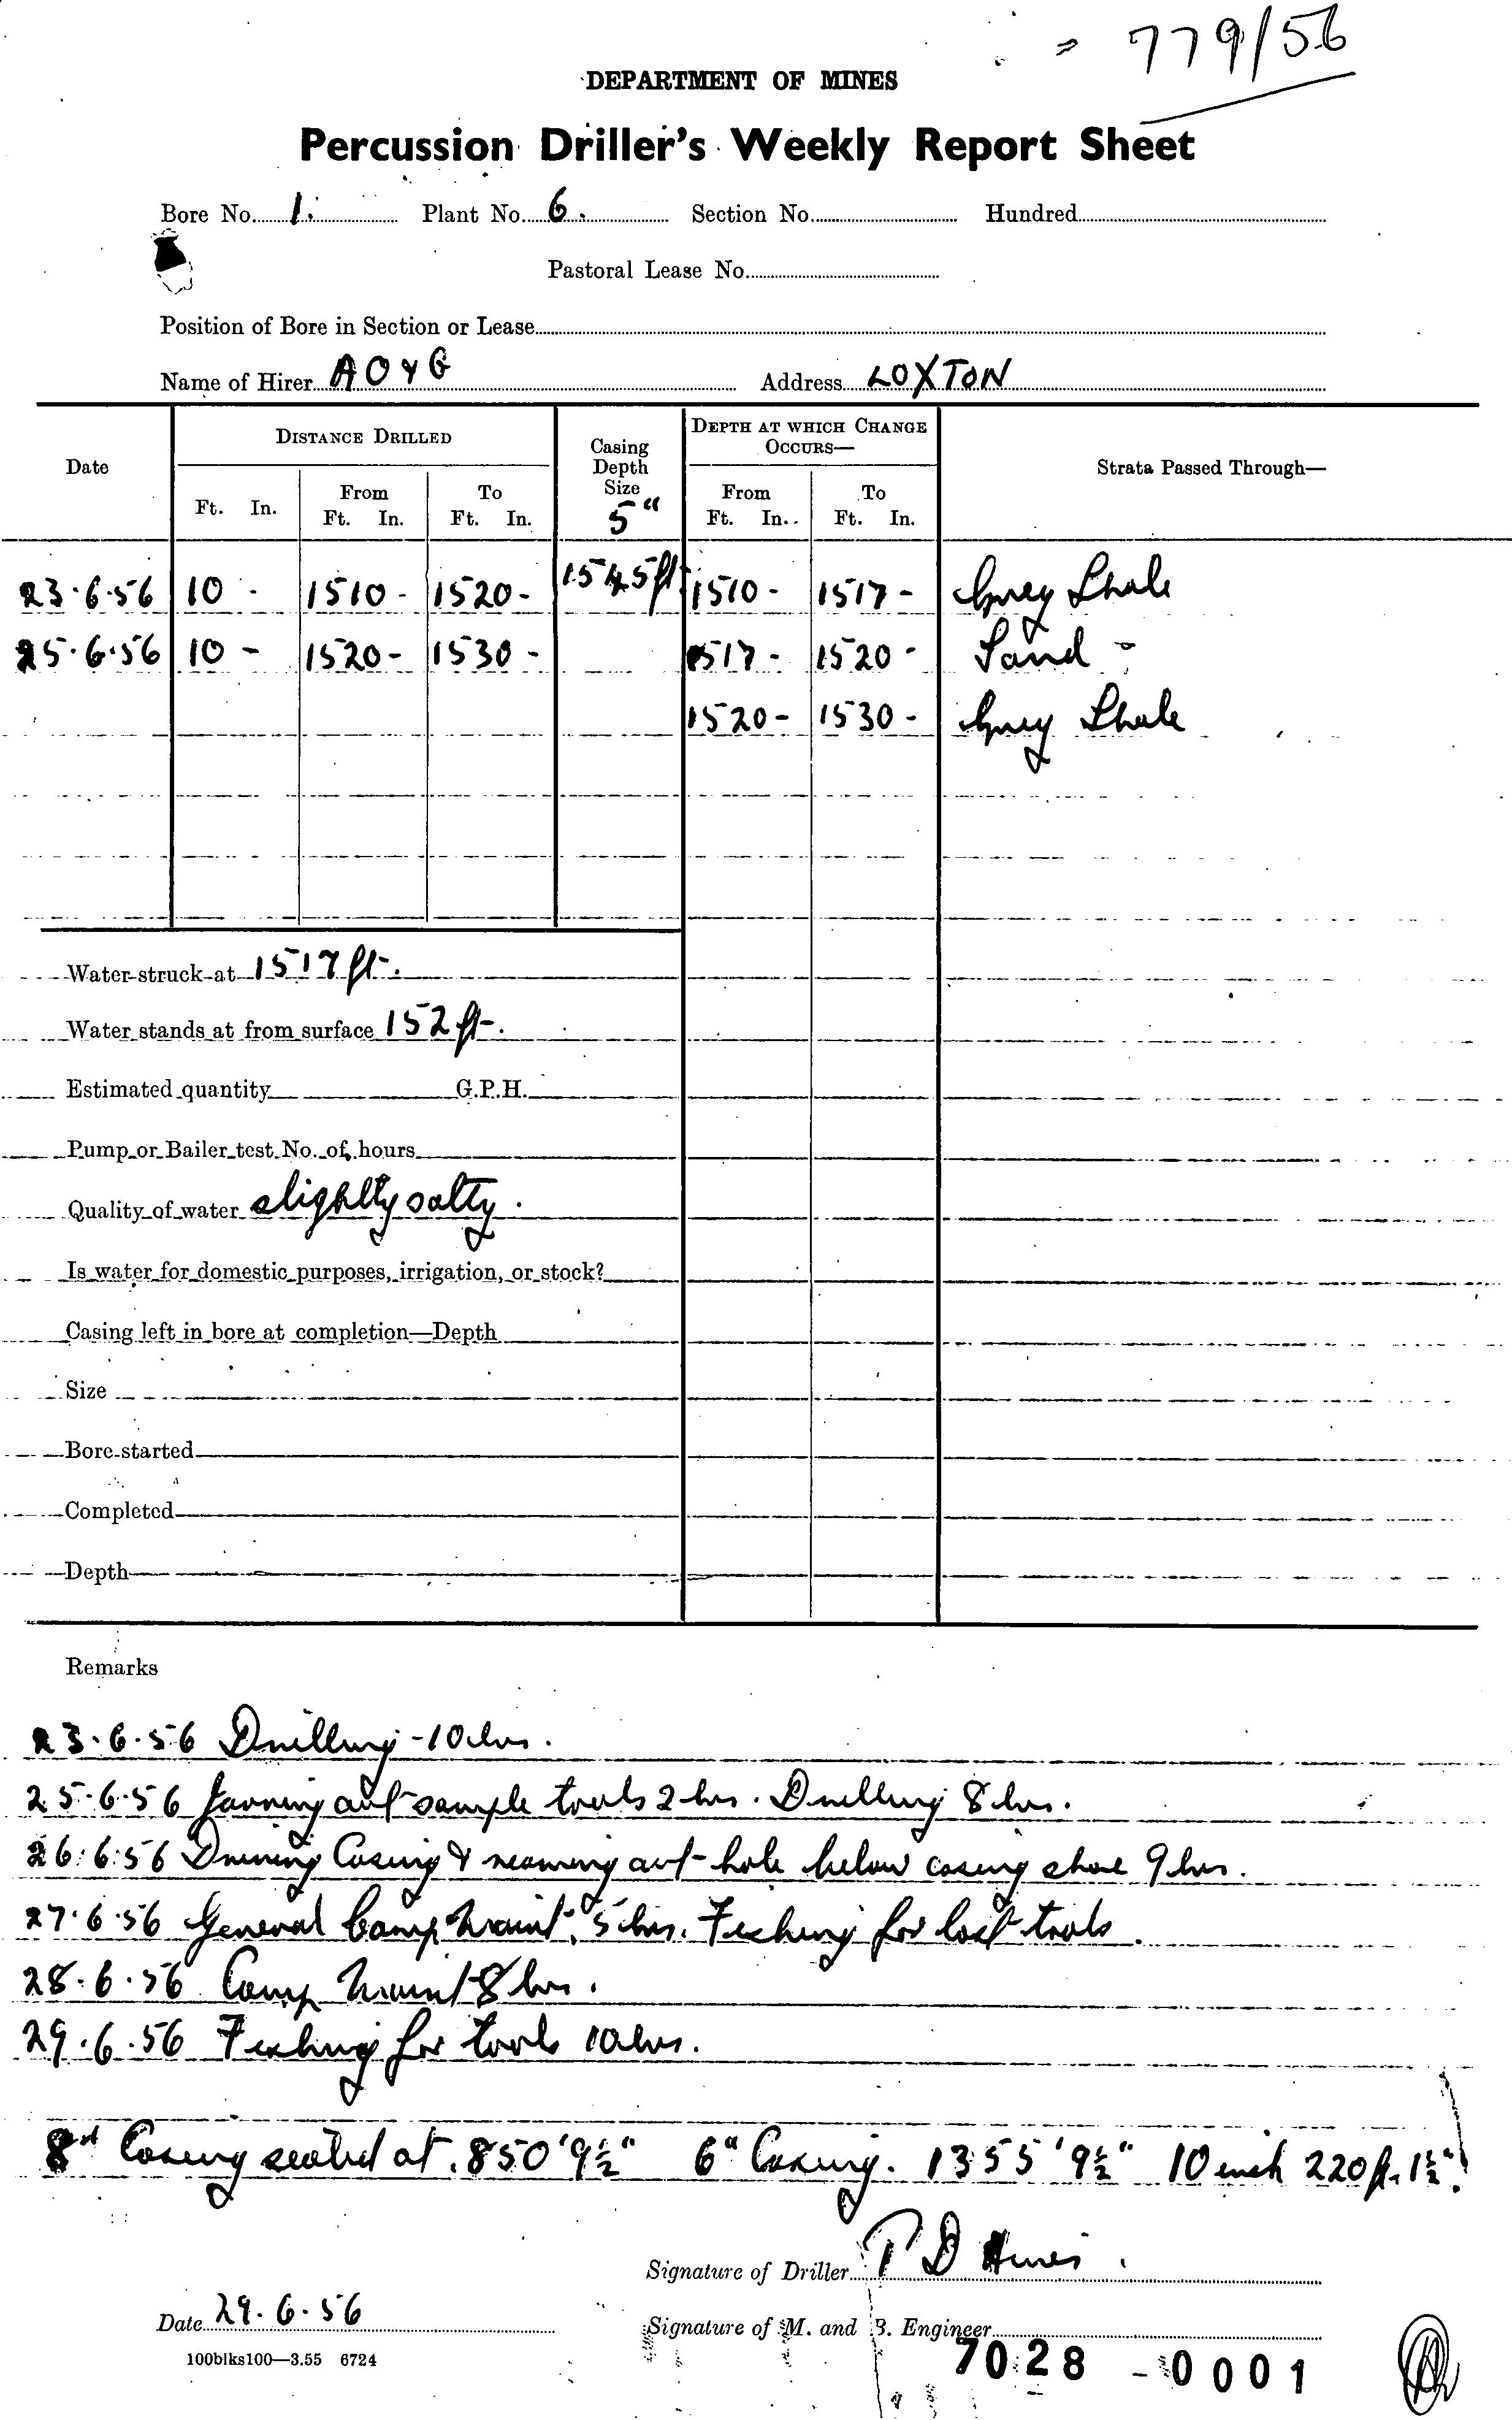 779/56
DEPARTMENT OF MINES
Percussion Driller's Weekly Report Sheet
Bore No. 1. Plant No. 6. Section No. Hundred
Pastoral Lease No.
Position of Bore in Section or Lease
Name of Hirer A O & G Address LOXTON
Date
DISTANCE DRILLED
Ft. In.
From Ft. In.
To Ft. In.
Casing Depth Size 5"
DEPTH AT WHICH CHANGE OCCURS—
From Ft. In.
To Ft. In.
Strata Passed Through—
23.6.56 10 - 1510 - 1520 - 1545 ft 1510 - 1517 - Grey Shale
25.6.56 10 - 1520 - 1530 - 1517 - 1520 - Sand -
1520 - 1530 - Grey Shale
Water struck at 1517 ft.
Water stands at from surface 152 ft.
Estimated quantity G.P.H.
Pump or Bailer test No. of hours
Quality of water slightly salty.
Is water for domestic purposes, irrigation, or stock?
Casing left in bore at completion—Depth
Size
Bore started
Completed
Depth
Remarks
23.6.56 Drilling - 10 hrs.
25.6.56 Jarring out sample tools 2 hrs. Drilling 8 hrs.
26.6.56 Driving Casing & reaming out hole below casing shoe 9 hrs.
27.6.56 General Camp Maint. 5 hrs. Fishing for lost tools.
28.6.56 Camp Maint 8 hrs.
29.6.56 Fishing for tools 10 hrs.
8" Casing seated at 850' 9½" 6" Casing. 1355' 9½" 10 inch 220 ft. 1½"
Signature of Driller P D
Date 29.6.56
Signature of M. and B. Engineer
100blks100—3.55 6724
7028 - 0001